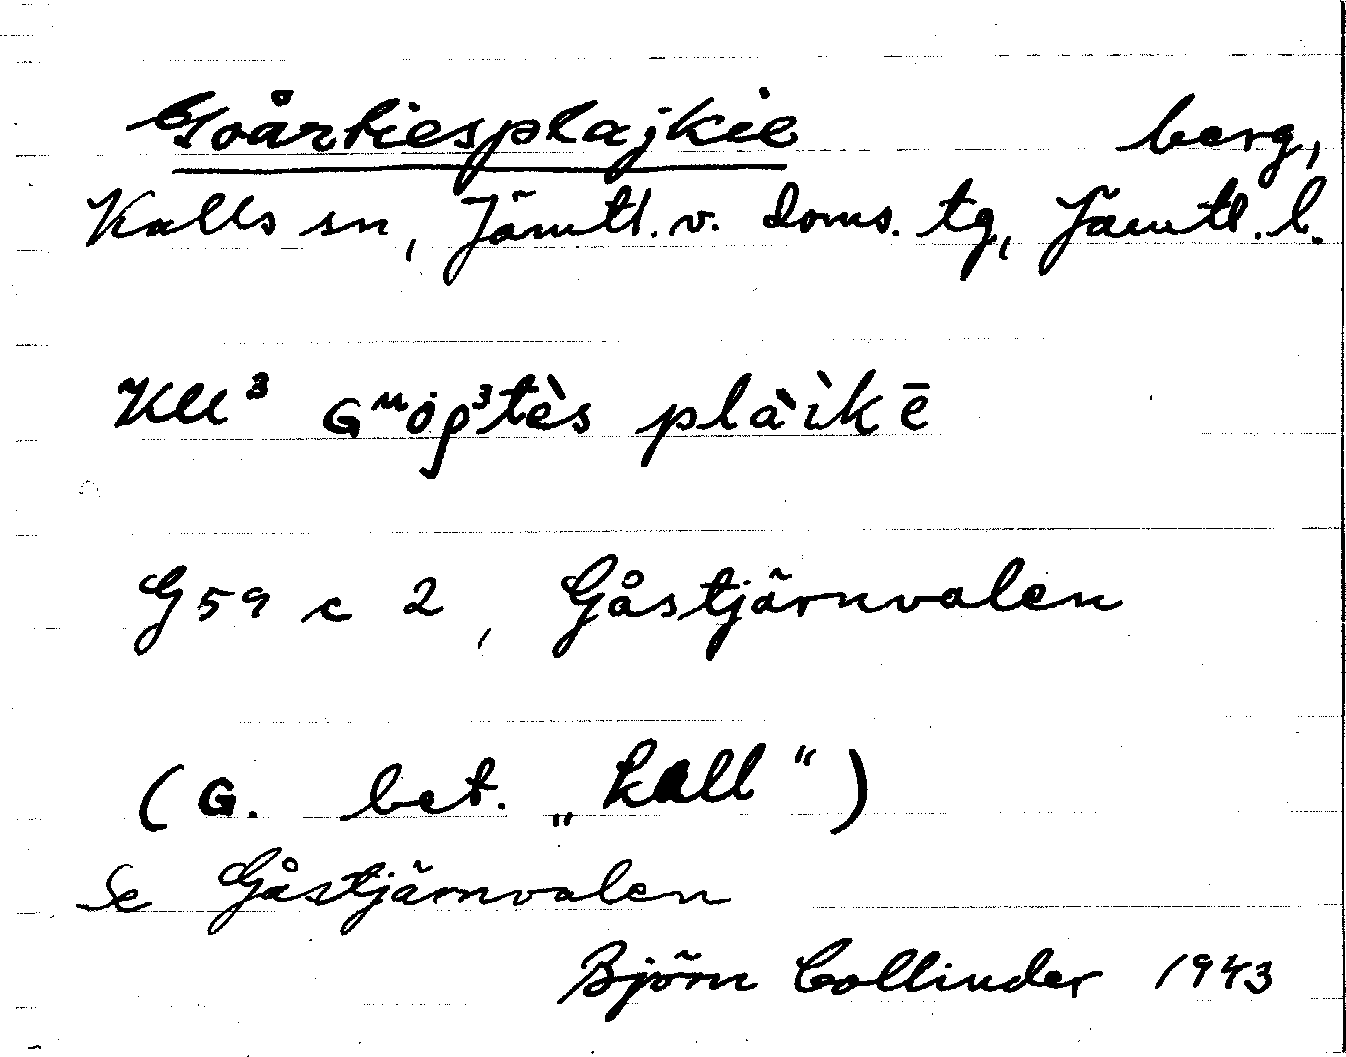 Goårtiesplajkie berg,
Kalls sn, Jämtl. v. doms. tg, Jämtl. l.
Kll³ Gᵘȯρ³tès plàìkē
G 59 c 2, Gåstjärnvalen
(G. bet. „kall“)
Se Gåstjärnvalen
Björn Collinder 1943